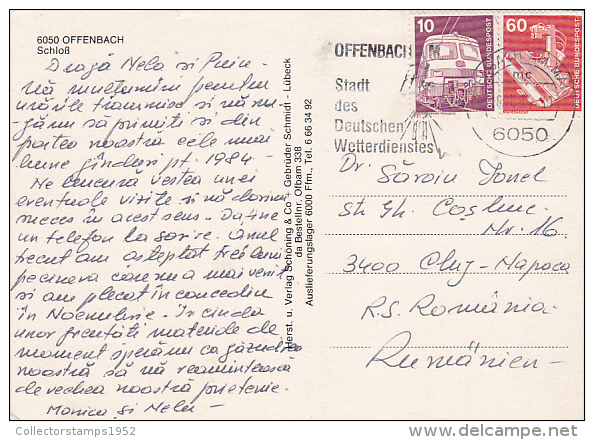 6050 OFFENBACH
Schloß
Dragă Nelo și Puiu-
vă mulțumim pentru
urările transmise și vă ru-
găm să primiți și din
partea noastră cele mai
bune gînduri pt. 1984-
Ne bucură vestea unei
eventuale vizite și vă dorim
succes în acest sens. Dați-ne
un telefon la sosire. Anul
trecut am așteptat trei luni
pe cineva care nu a mai venit
și am plecat în concediu
în Noembrie. În ciuda
unor greutăți materiale de
moment sperăm ca găzduirea
noastră să vă reamintească
de vechea noastră prietenie.
Monica și Nelu-
Herst. u. Verlag Schöning & Co + Gebrüder Schmidt - Lübeck
da Bestellnr. Ofbam 338
Auslieferungslager 6000 Ffm., Tel. 6 66 34 92
OFFENBACH M
Stadt
des
Deutschen
Wetterdienstes
6050
10
DEUTSCHE BUNDESPOST
60
DEUTSCHE BUNDESPOST
Dr. Săroiu Ionel
str. Gh. Coșbuc
Nr. 16
3400 Cluj-Napoca
R.S. România
Rumänien-
Collectorstamps1952
©delcampe.net